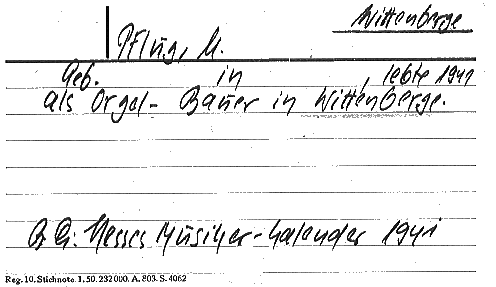 Wittenberge
Pflug, M.
Geb. in , lebte 1941
als Orgel- Bauer in Wittenberge.
Hesses Musiker-Kalender 1941
Reg. 10. Stichnote. 1. 50. 232000. A. 803. S. 4062